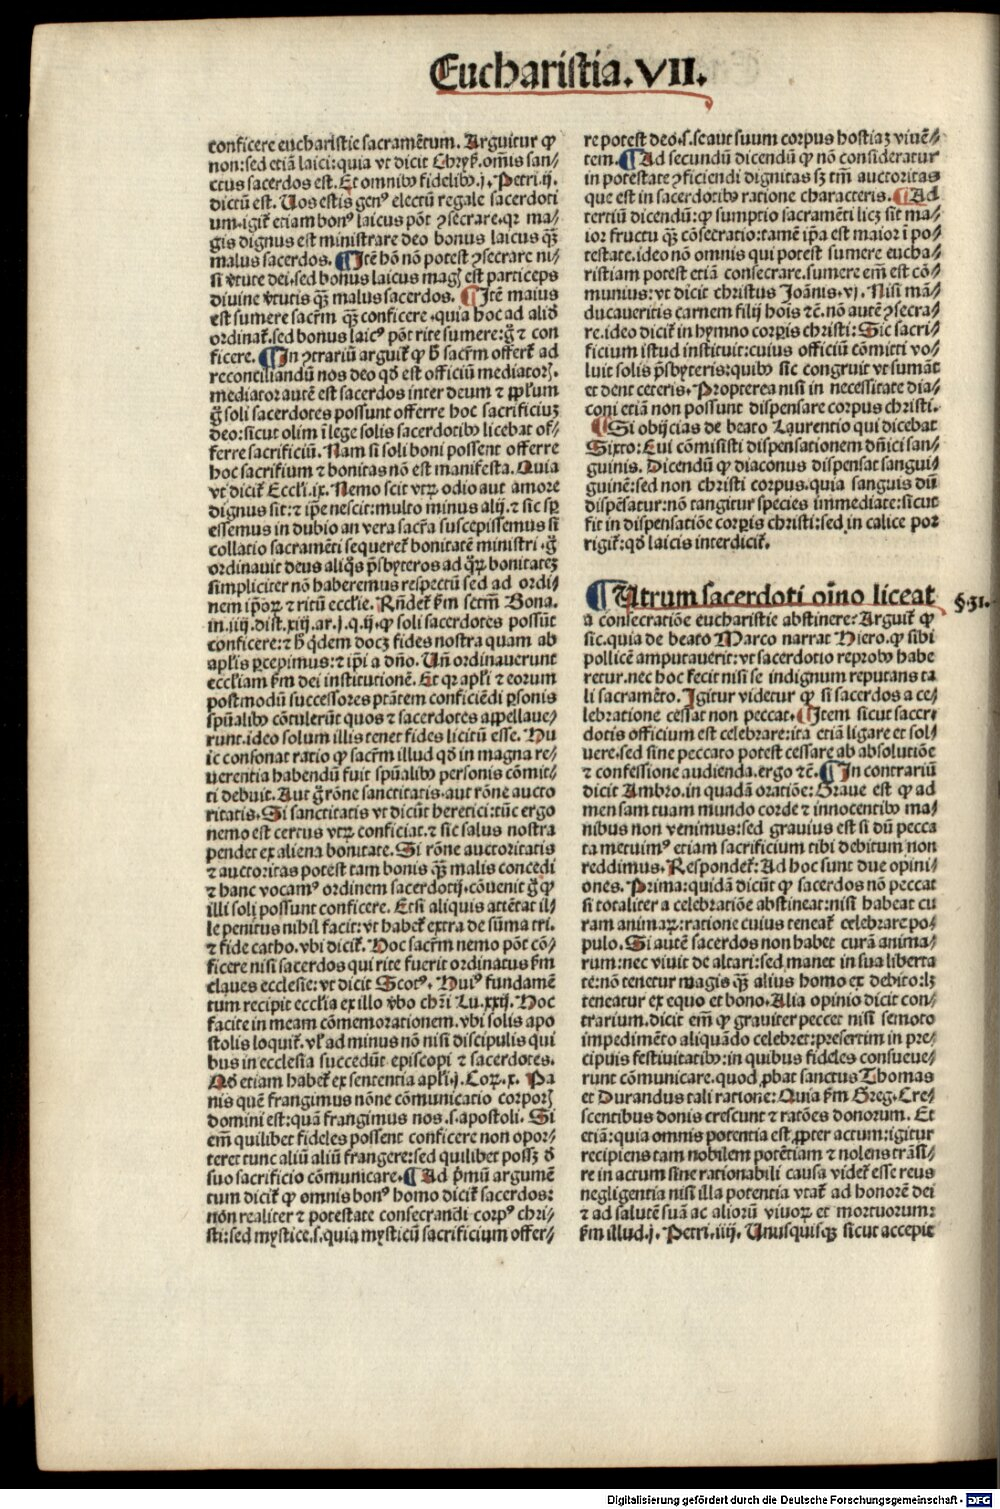 Eucharistia.VII.
conficere eucharistie sacramētum. Arguitur ꝙ
non: sed etiā laici: quia vt dicit Chryẜ. om̄is san⸗
ctus sacerdos est. Et omnibꝰ fidelibꝰ. j. Petri. ij.
dictū est. Uos estis genꝰ electū regale sacerdoti
um. igit̄ etiam bonꝰ laicus pōt ꝯsecrare. qr ma⸗
gis dignus est ministrare deo bonus laicus q̄ꝫ
malus sacerdos. ¶ Itē hō nō potest ꝯsecrare ni⸗
si v̄tute dei. sed bonus laicus magꝭ est particeps
diuine v̄tutis q̄ꝫ malus sacerdos. ¶ Itē maius
est sumere sacr̄m q̄ꝫ conficere. quia hoc ad aliđ
ordinat̄. sed bonus laicꝰ pōt rite sumere: g̊ ⁊ con
ficere. ¶ In ꝯtrariū arguit̄ ꝙ h̄ sacr̄m offert̄ ad
reconciliandū nos deo qđ est officiū mediatorꝭ.
mediator autē est sacerdos inter deum ⁊ ppl̄um
g̊ soli sacerdotes possunt offerre hoc sacrificiuꝫ
deo: sicut olim ī lege solis sacerdotibꝰ licebat of⸗
ferre sacrificiū. Nam si soli boni possent offerre
hoc sacrifium ⁊ bonitas nō est manifesta. Quia
vt dicit̄ Eccl̄i. ix. Nemo scit vtꝝ odio aut amore
dignus sit: ⁊ ip̄e nescit: multo minus alij. ⁊ sic sꝑ
essemus in dubio an vera sacr̄a suscepissemus si
collatio sacramēti sequeret̄ bonitatē ministri. g̊
ordinauit deus aliq̊s p̄sbyteros ad q̊ꝝ bonitateꝫ
simpliciter nō haberemus respectū sed ad ordi⸗
nem ip̄oꝝ ⁊ ritū eccl̄ie. Rn̄det̄ ẜm sctm̄ Bona.
in. iiij. dist. xiij. ar. j. q. ij. ꝙ soli sacerdotes possūt
conficere: ⁊ h̄ q̇dem docꝫ fides nostra quam ab
apl̄is ꝑcepimus: ⁊ ip̄i a dn̄o. Un̄ ordinauerunt
eccl̄iam ẜm dei institutionē. Et qr apl̄i ⁊ eorum
postmodū successores ptātem conficiēdi ꝑsonis
spūalibꝰ cōtulerūt quos ⁊ sacerdotes appellaue⸗
runt. ideo solum illis tenet fides licitū esse. Hu
ic consonat ratio ꝙ sacr̄m illud qđ in magna re⸗
uerentia habendū fuit spūalibꝰ personis cōmit⸗
ti debuit. Aut g̊ rōne sanctitatis. aut rōne aucto
ritatis. Si sanctitatis vt dicūt heretici: tūc ergo
nemo est certus vtꝝ conficiat. ⁊ sic salus nostra
pendet ex aliena bonitate. Si rōne auctoritatis
⁊ auctoritas potest tam bonis q̄ꝫ malis concedi
⁊ hanc vocamꝰ ordinem sacerdotij. cōuenit g̊ ꝙ
illi soli possunt conficere. Et si aliquis attētat il⸗
le penitus nihil facit: vt habet̄ extra de sūma tri.
⁊ fide catho. vbi dicit̄. Hoc sacr̄m nemo pōt cō⸗
ficere nisi sacerdos qui rite fuerit ordinatus ẜm
claues ecclesie: vt dicit Scotꝰ. Huiꝰ fundamē
tum recipit eccl̄ia ex illo v̄bo chr̄i Lu. xxij. Hoc
facite in meam cōmemorationem. vbi solis apo
stolis loquit̄. vl̄ ad minus nō nisi discipulis qui
bus in ecclesia succedūt episcopi ⁊ sacerdotes.
Qđ etiam habet̄ ex sententia apl̄i. j. Coꝝ. x. Pa
nis quē frangimus nōne cōmunicatio corporꝭ
domini est: quā frangimus nos. s. apostoli. Si
em̄ quilibet fideles possent conficere non opor⸗
teret tunc aliū aliū frangere: sed quilibet possꝫ đ
suo sacrificio cōmunicare. ¶ Ad p̄mū argumē
tum dicit̄ ꝙ omnis bonꝰ homo dicit̄ sacerdos:
nōn realiter ⁊ potestate consecrandi corpꝰ chri⸗
sti: sed mystice. s. quia mysticū sacrificium offer⸗
re potest deo. s. seaut suum corpus hostiaꝫ viuē⸗
tem. ¶ Ad secundū dicendū ꝙ nō consideratur
in potestate ꝯficiendi dignitas sꝫ tm̄ auctoritas
que est in sacerdotibꝰ ratione characteris. ¶ Ad
tertiū dicendū: ꝙ sumptio sacramēti licꝫ sit ma⸗
ior fructu q̄ꝫ cōsecratio: tamē ip̄a est maior ī po⸗
testate. ideo nō omnis qui potest sumere eucha⸗
ristiam potest etiā consecrare. sumere em̄ est cō⸗
munius: vt dicit christus Joānis. vj. Nisi mā⸗
ducaueritis carnem filij hoīs ⁊c̄. nō autē ꝯsecra⸗
re. ideo dicit̄ in hymno corꝑis christi: Sic sacri⸗
ficium istud instituit: cuius officiū cōmitti vo⸗
luit solis p̄sbyteris: quibꝰ sic congruit vt sumāt
et dent ceteris. Propterea nisi in necessitate dia⸗
coni etiā non possunt dispensare corpus christi.
¶ Si obijcias de beato Laurentio qui dicebat
Sixto: Cui cōmisisti dispensationem dn̄ici san⸗
guinis. Dicendū ꝙ diaconus dispensat sangui⸗
guinē: sed non christi corpus. quia sanguis dū
dispēsatur: nō tangitur species immediate: sicut
fit in dispensatiōe corꝑis christi: sed in calice por
rigit̄: qđ laicis interdicit̄.
¶ Utrum sacerdoti oīno liceat
§. 51.
a consecratiōe eucharistie abstinere: Arguit̄ ꝙ
sic. quia de beato Marco narrat Hiero. ꝙ sibi
pollicē amputauerit: vt sacerdotio reprobꝰ habe
retur. nec hoc fecit nisi se indignum reputans ta
li sacramēto. Igitur videtur ꝙ si sacerdos a ce⸗
lebratione cessat non peccat. ¶ Item sicut sacer
dotis officium est celebrare: ita etiā ligare et sol⸗
uere. sed sine peccato potest cessare ab absolutiōe
⁊ confessione audienda. ergo ⁊c̄. ¶ In contrariū
dicit Ambro. in quadā oratiōe: Graue est ꝙ ad
mensam tuam mundo corde ⁊ innocentibꝰ ma⸗
nibus non venimus: sed grauius est si dū pecca
ta metuimꝰ etiam sacrificium tibi debitum non
reddimus. Respondet̄: Ad hoc sunt due opini⸗
ones. Prima: quidā dicūt ꝙ sacerdos nō peccat
si totaliter a celebratiōe abstineat: nisi habeat cu
ram animaꝝ: ratione cuius teneat̄ celebrare po⸗
pulo. Si autē sacerdos non habet curā anima⸗
rum: nec viuit de altari: sed manet in sua liberta
te: nō tenetur magis q̄ꝫ alius homo ex debito: lꝫ
teneatur ex equo et bono. Alia opinio dicit con⸗
trarium. dicit em̄ ꝙ grauiter peccet nisi semoto
impedimēto aliquādo celebret: presertim in pre⸗
cipuis festiuitatibꝰ: in quibus fideles consueue⸗
runt cōmunicare. quod ꝓbat sanctus Thomas
et Durandus tali ratione: Quia ẜm Greg. Cre⸗
scentibus donis crescunt ⁊ ratōes donorum. Et
etiā: quia omnis potentia est ꝓpter actum: igitur
recipiens tam nobilem potētiam ⁊ nolens trāsi⸗
re in actum sine rationabili causa videt̄ esse reus
negligentia nisi illa potentia vtat̄ ad honorē dei
⁊ ad salutē suā ac aliorū viuoꝝ et mortuorum:
ẜm illud. j. Petri. iiij. Unusquisqꝫ sicut accepit
Digitalisierung gefördert durch die Deutsche Forschungsgemeinschaft - DFG